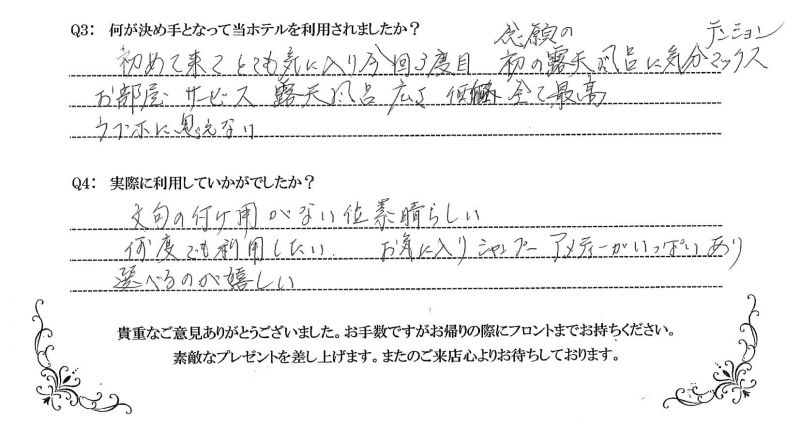 Q3： 何が決め手となって当ホテルを利用されましたか？
念願の テンション
初めて来てとても気に入り今回3度目 初の露天風呂に気分マックス
お部屋 サービス 露天風呂 広さ 価格 全て最高
ラブホに思えない
Q4： 実際に利用していかがでしたか？
文句の付け用がない位素晴らしい
何度でも利用したい お気に入りシャンプー アメティーがいっぱいあり
選べるのが嬉しい
貴重なご意見ありがとうございました。お手数ですがお帰りの際にフロントまでお持ちください。
素敵なプレゼントを差し上げます。またのご来店心よりお待ちしております。